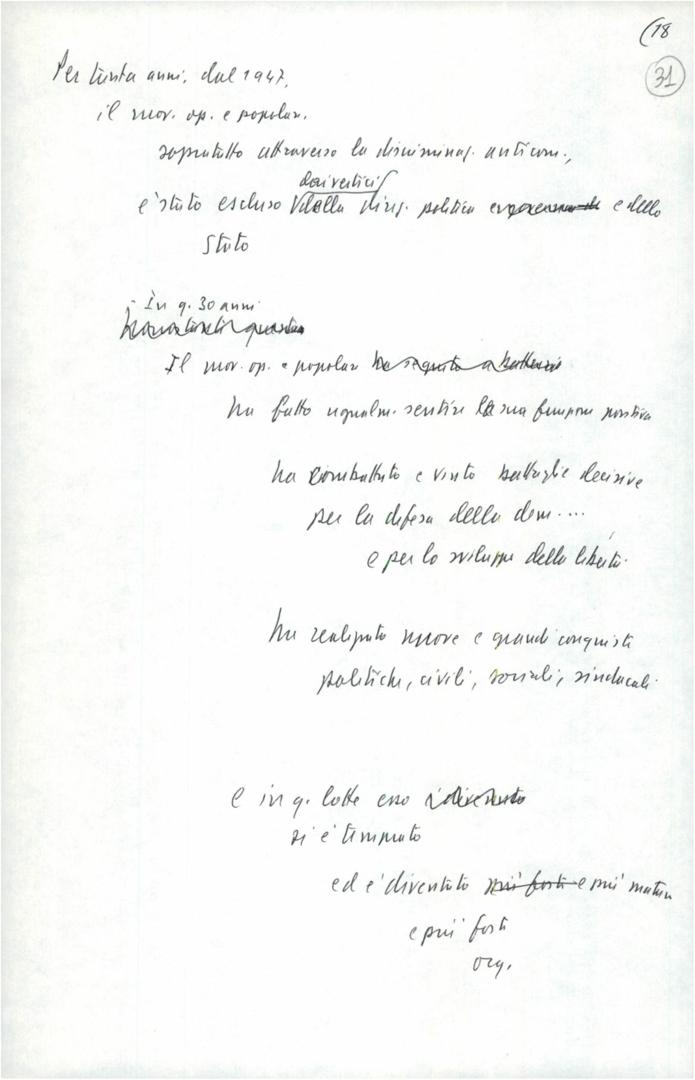 (18
31
Per trenta anni, dal 1947,
il mov. op. e popolar.
sopratutto attraverso la discriminaz. anticom.,
dai vertici
è stato escluso dalla direz. politica e dello
Stato
- In q. 30 anni
Il mov. op. e popolar ha seguito a
ha fatto ugualm. sentire la sua funzione positiva
ha combattuto e vinto battaglie decisive
per la difesa della dem....
e per lo sviluppo delle libertà.
ha realizzato nuove e grandi conquiste
politiche, civili, sociali, sindacali.
E in q. lotte esso è divenuto
si è temprato
ed è diventato più forte e più maturo
e più forte
org.